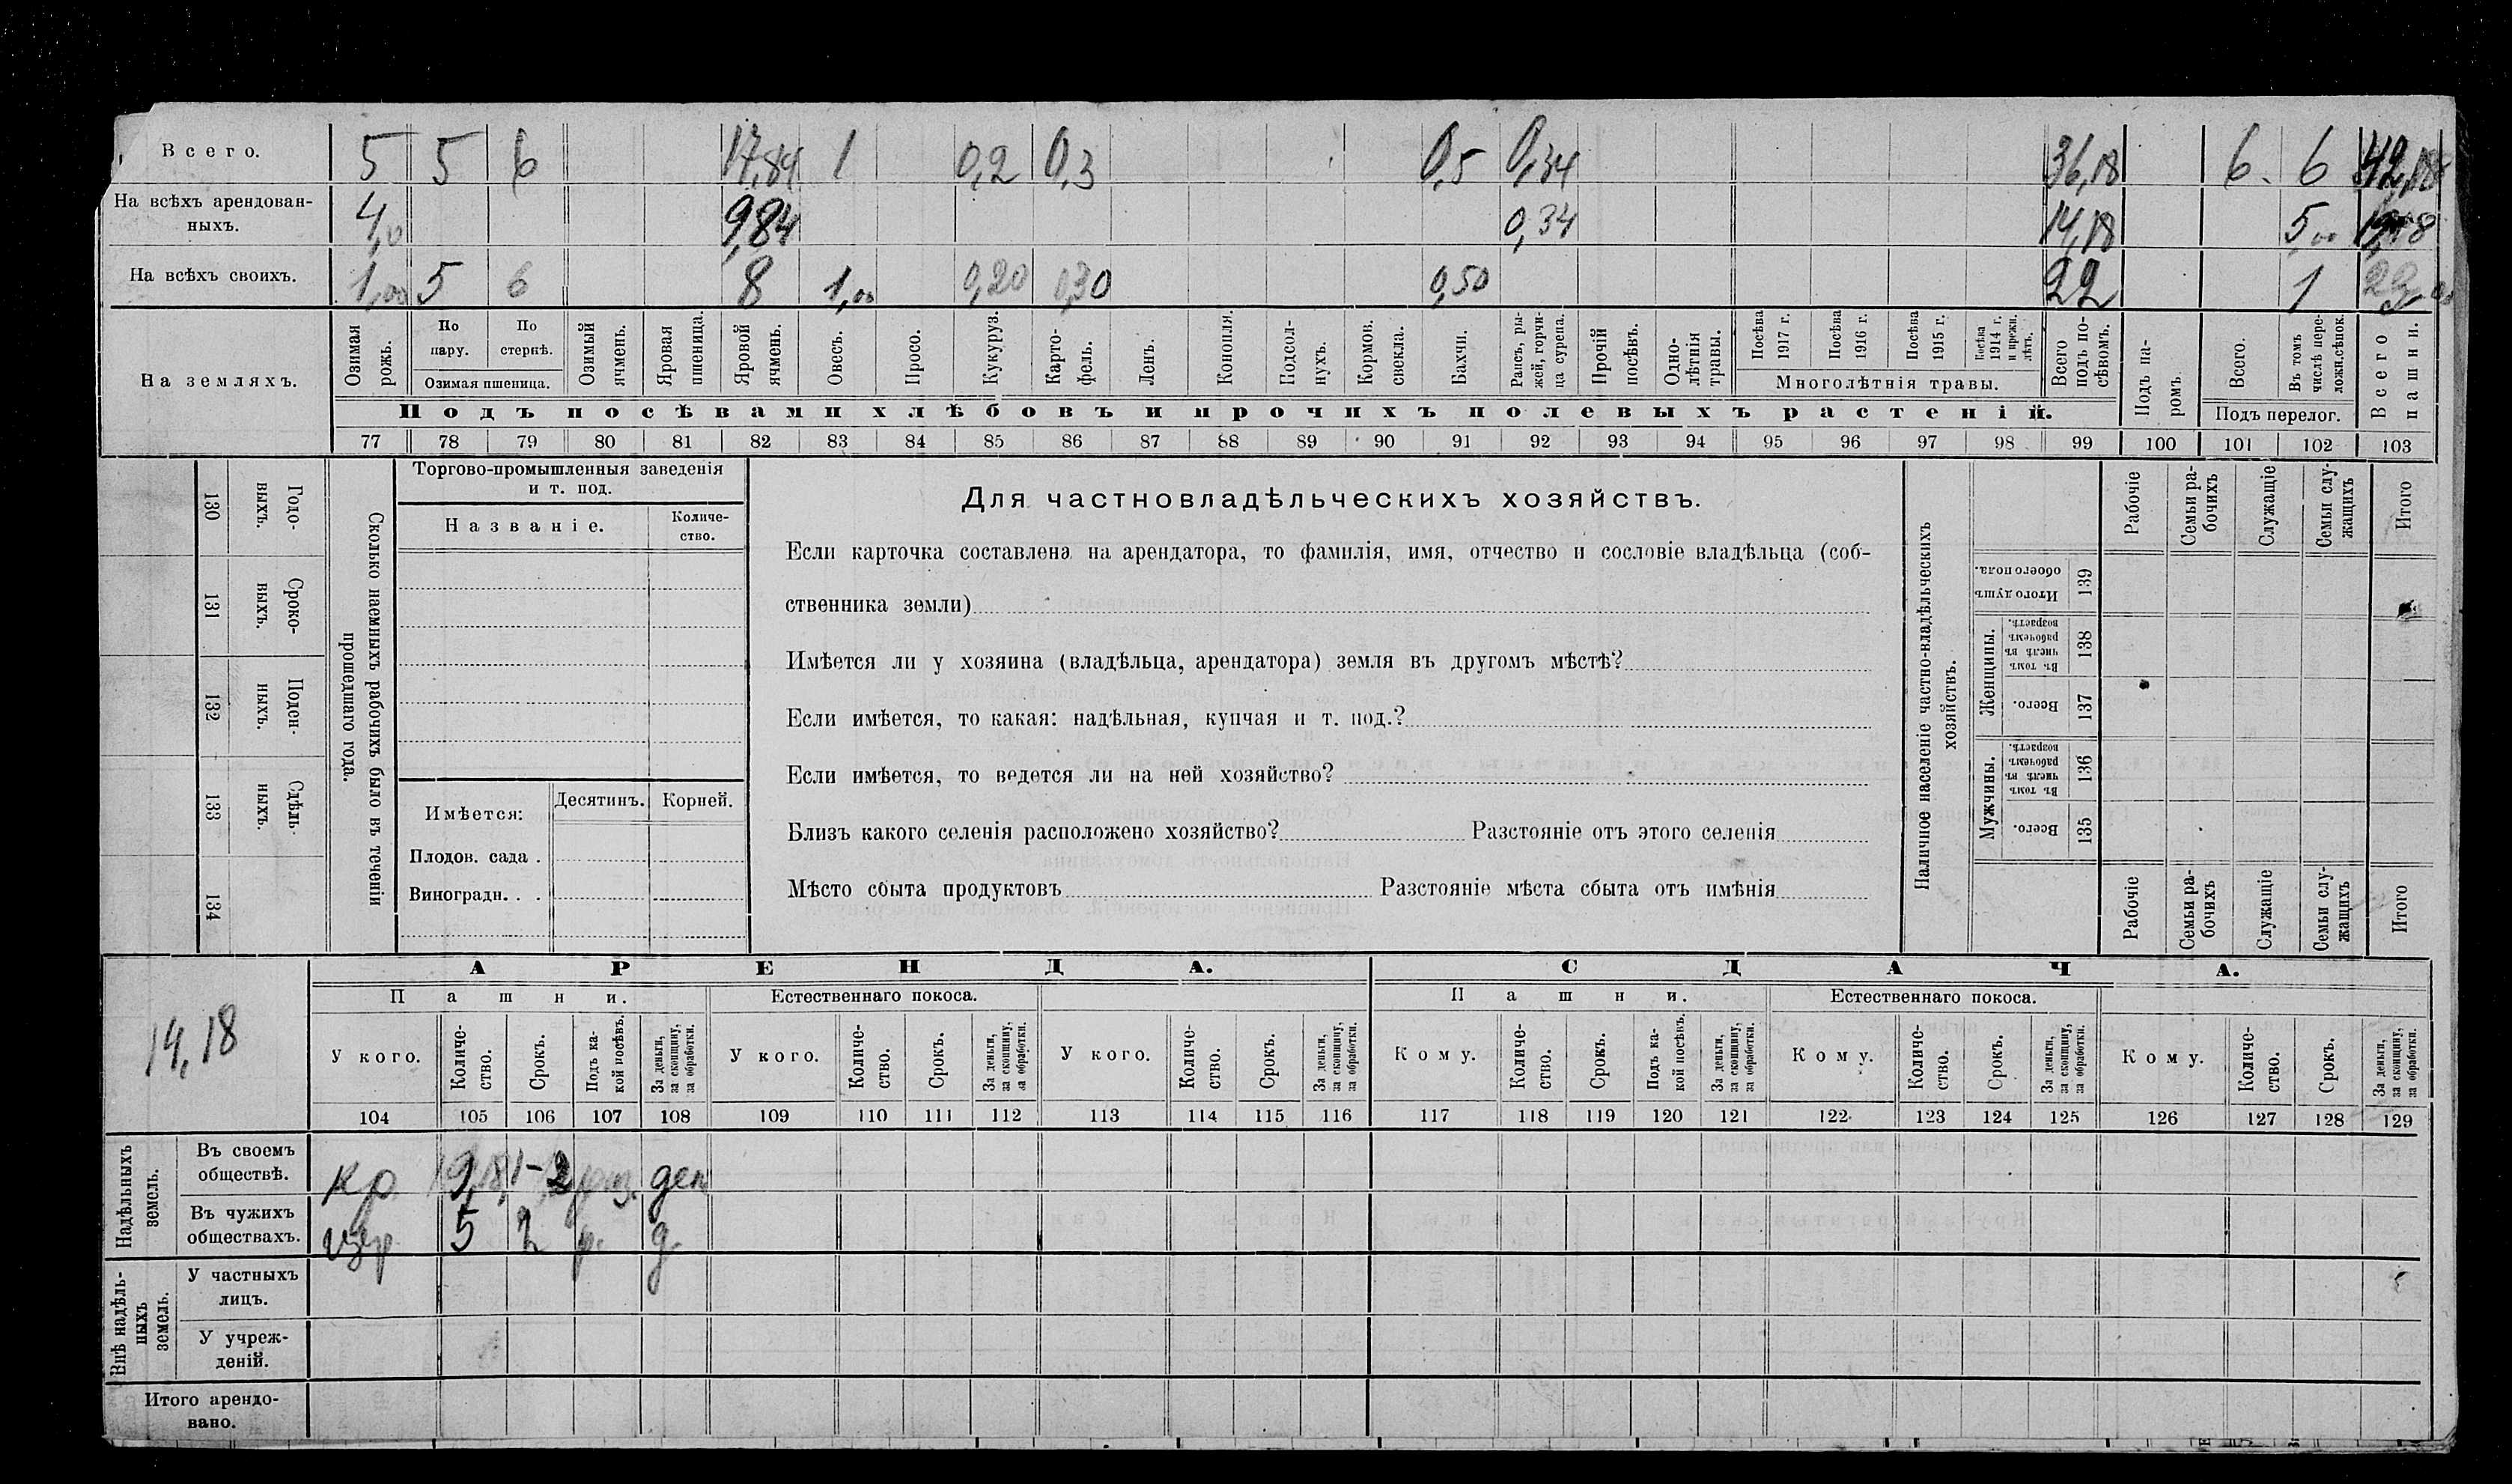 Всего. 5 5 6 17,84 1 0,2 0,3 0,5 0,34 36,18 6. 6 42,18
На всѣхъ арендован-
ныхъ. 4,0 9,84 0,34 14,18 5,00
На всѣхъ своихъ. 1,00 5 6 8 1,00 0,20 0,30 0,50 22 1
На земляхъ.
Озимая
рожь.
По
пару.
По
стернѣ.
Озимая пшеница.
Озимый
ячмень.
Яровая
пшеница.
Яровой
ячмень.
Овесъ.
Просо.
Кукуруз.
Карто-
фель.
Ленъ.
Конопля.
Подсол-
нухъ.
Кормов.
свекла.
Бахчи.
Рапсъ, ры-
жей, горчи-
ца сурепа.
Прочій
посѣвъ.
Одно-
лѣтнія
травы.
Посѣва
1917 г.
Посѣва
1916 г.
Посѣва
1915 г.
Посѣва
1914 г.
и прежн.
лѣтъ.
Многолѣтнія травы.
Всего
подъ по-
сѣвомъ.
Подъ па-
ромъ
Всего.
Въ томъ
числѣ пере-
ложн.сѣнок.
Подъ перелог.
Всего
пашни.
Подъ посѣвами хлѣбовъ и прочихъ полевыхъ растеній.
77 78 79 80 81 82 83 84 85 86 87 88 89 90 91 92 93 94 95 96 97 98 99 100 101 102 103
130 Годо-
выхъ.
131 Сроко-
ныхъ.
132 Поден-
ныхъ.
133 Сдѣль-
ныхъ.
134
Сколько наемныхъ рабочихъ было въ теченіи
прошедшаго года.
Торгово-промышленныя заведенія
и т. под.
Названіе.
Количе-
ство.
Имѣется: Десятинъ. Корней.
Плодов. сада .
Виноградн. . .
Для частновладѣльческихъ хозяйствъ.
Если карточка составлена на арендатора, то фамилія, имя, отчество и сословіе владѣльца (соб-
ственника земли)
Имѣется ли у хозяина (владѣльца, арендатора) земля въ другомъ мѣстѣ?
Если имѣется, то какая: надѣльная, купчая и т. под.?
Если имѣется, то ведется ли на ней хозяйство?
Близъ какого селенія расположено хозяйство? Разстояніе отъ этого селенія
Мѣсто сбыта продуктовъ Разстояніе мѣста сбыта отъ имѣнія
Наличное населеніе частно-владѣльческихъ
хозяйствъ.
Рабочіе
Семьи ра-
бочихъ
Служащіе
Семьи слу-
жащихъ
Итого
Итого душъ
обоего пола.
139
Женщины.
Въ томъ
числѣ въ
рабочемъ
возрастѣ.
138
Всего.
137
Мужчины.
Въ томъ
числѣ въ
рабочемъ
возрастѣ.
136
Всего.
135
Рабочіе
Семьи ра-
бочихъ
Служащіе
Семьи слу-
жащихъ
Итого
14,18
АРЕНДА. СДАЧА.
Пашни. Естественнаго покоса. Пашни. Естественнаго покоса.
У кого.
Количе-
ство.
Срокъ.
Подъ ка-
кой посѣвъ.
За деньги,
за скопщину,
за обработки.
У кого.
Количе-
ство.
Срокъ.
За деньги,
за скопщину,
за обработки.
У кого.
Количе-
ство.
Срокъ.
За деньги,
за скопщину,
за обработки.
Кому.
Количе-
ство.
Срокъ.
Подъ ка-
кой посѣвъ.
За деньги,
за скопщину,
за обработки.
Кому.
Количе-
ство.
Срокъ.
За деньги,
за скопщину,
за обработки.
Кому.
Количе-
ство.
Срокъ.
За деньги,
за скопщину,
за обработки.
104 105 106 107 108 109 110 111 112 113 114 115 116 117 118 119 120 121 122 123 124 125 126 127 128 129
Надѣльныхъ
земель.
Въ своемъ
обществѣ. кр 9,18 1-2 ден
Въ чужихъ
обществахъ. 5 2 р. д.
Внѣ надѣль-
ныхъ
земель.
У частныхъ
лицъ.
У учреж-
деній.
Итого арендо-
вано.